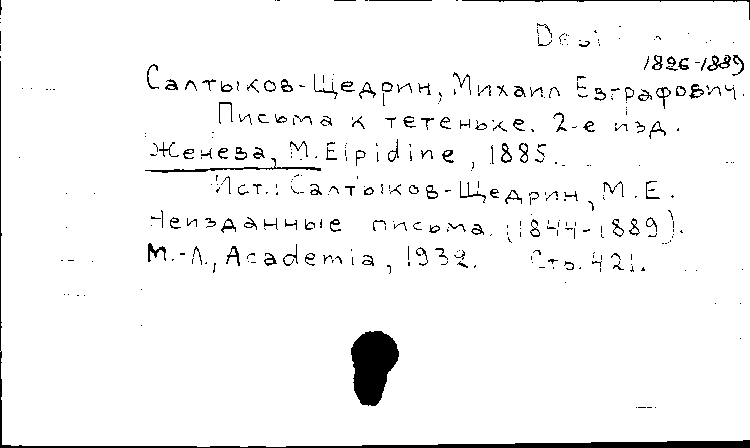 1826-1889
Салтыков-Щедрин, Михаил Евграфович.
Письма к тетеньке. 2-е изд.
Женева, M. Elpidine, 1885.
Ист.: Салтыков-Щедрин, М. Е.
Неизданные письма. (1844-1889).
М.-Л., Academia, 1932. Стр. 421.